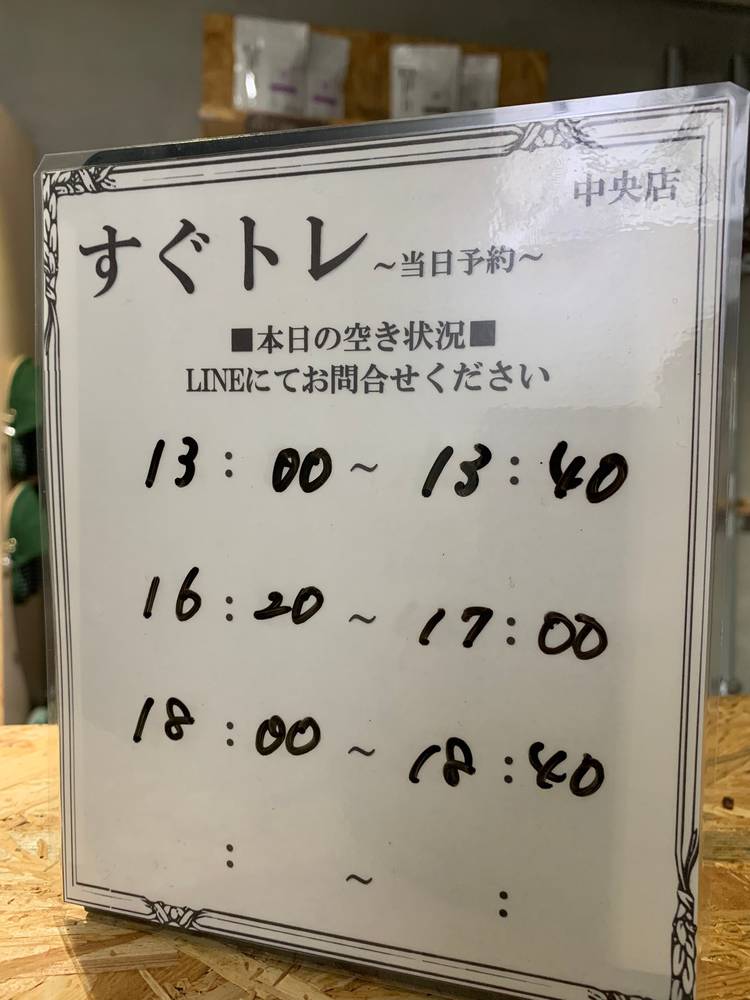 中央店
すぐトレ ～当日予約～
■本日の空き状況■
LINEにてお問合せください
13：00～13：40
16：20～17：00
18：00～18：40
：～：